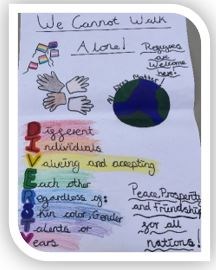 We Cannot Walk
Alone!
Refugees
are
Welcome
here!
All lives Matter!
Different
Individuals
Valuing and accepting
Each other
Regardless of:
Skin color, Gender
Talents or
Years
Peace, Prosperity
and Friendship
for all
nations!